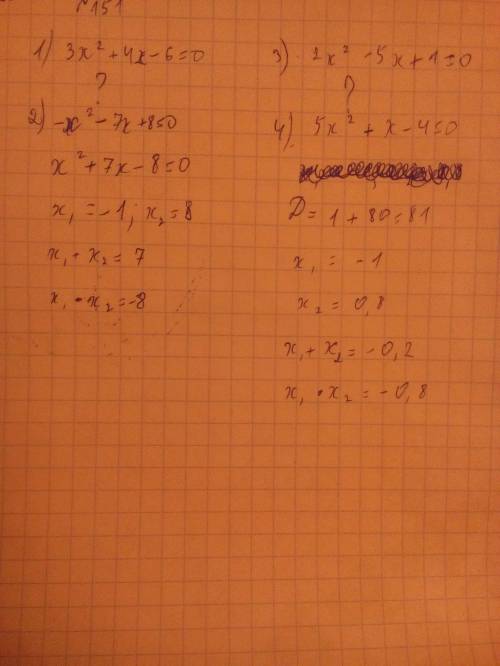 №151
1) 3x² + 4x - 6 = 0
?
2) -x² - 7x + 8 = 0
x² + 7x - 8 = 0
x₁ = -1; x₂ = 8
x₁ + x₂ = 7
x₁ • x₂ = -8
3) 2x² - 5x + 1 = 0
?
4) 5x² + x - 4 = 0
D = 1 + 80 = 81
x₁ = -1
x₂ = 0,8
x₁ + x₂ = -0,2
x₁ • x₂ = -0,8